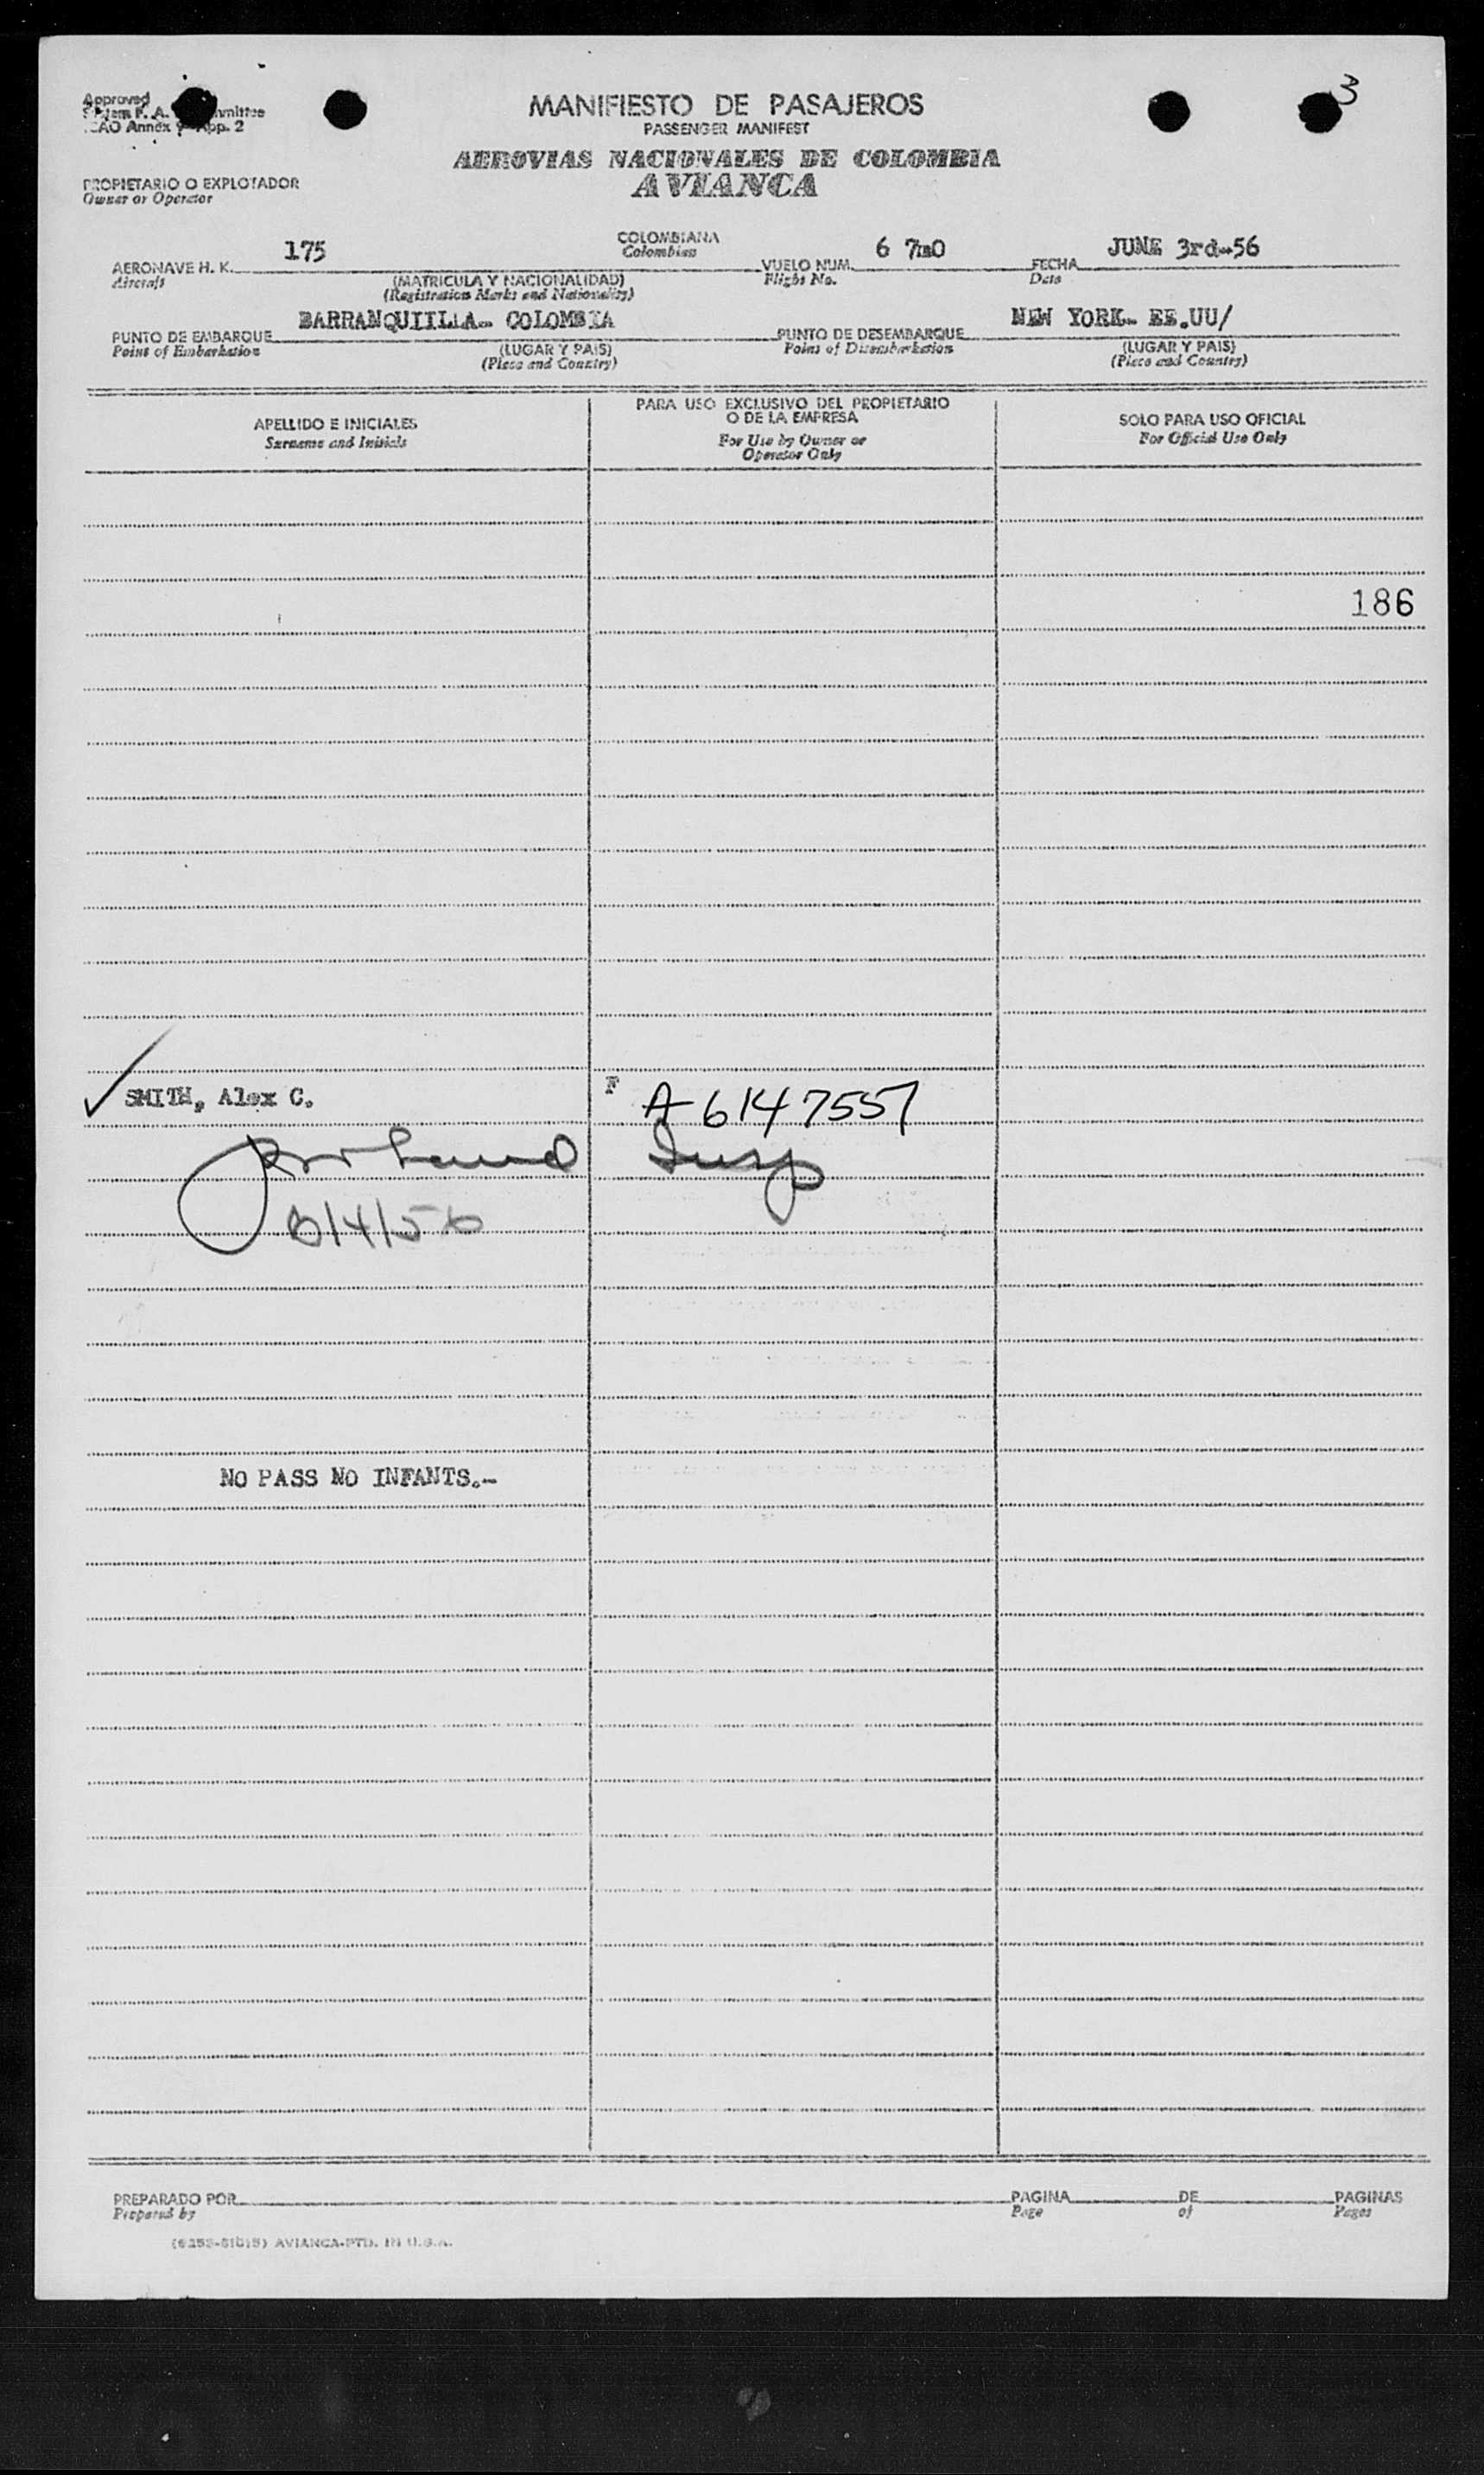 3
Approved
MANIFIESTO DE PASAJEROS
PASSENGER MANIFEST
AEROVIAS NACIONALES DE COLOMBIA
AVIANCA
PROPIETARIO O EXPLOTADOR
Owner or Operator
AERONAVE H. K. 175 COLOMBIANA VUELO NUM. 6 7mO FECHA JUNE 3rd-56
Aircraft Colombian Flight No. Date
(MATRICULA Y NACIONALIDAD)
(Registration Marks and Nationality)
PUNTO DE EMBARQUE BARRANQUIILLA- COLOMBIA PUNTO DE DESEMBARQUE NEW YORK- EE.UU/
Point of Embarkation Point of Disembarkation
(LUGAR Y PAIS) (LUGAR Y PAIS)
(Place and Country) (Place and Country)
APELLIDO E INICIALES PARA USO EXCLUSIVO DEL PROPIETARIO SOLO PARA USO OFICIAL
Surname and Initials O DE LA EMPRESA For Official Use Only
For Use by Owner or
Operator Only
186
SMITH, Alex C. F A 6147557
Insp
6/4/56
NO PASS NO INFANTS.-
PREPARADO POR PAGINA DE PAGINAS
Prepared by Page of Pages
AVIANCA-PTD. IN U.S.A.